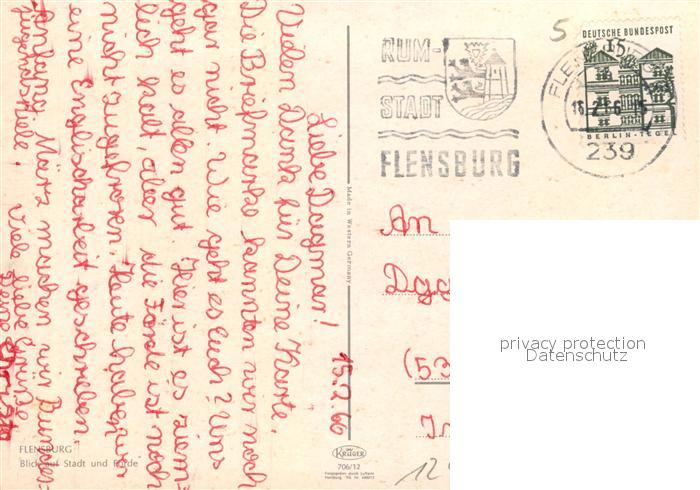 15.2.66
Liebe Dagmar!
Vielen Dank für Deine Karte.
Die Briefmarke kannten wir noch
gar nicht. Wie geht es Euch? Uns
geht es allen gut. Hier ist es ziem-
lich kalt, aber die Förde ist noch
nicht zugefroren. Heute haben wir
eine Englischarbeit geschrieben.
Anfang März machen wir Bundes-
jugendspiele.
Viele liebe Grüße
Deine
FLENSBURG
Blick auf Stadt und Förde
Made in Western Germany
KRÜGER
706/12
RUM-
STADT
FLENSBURG
5
DEUTSCHE BUNDESPOST
15
BERLIN-TEGEL
239
An
(53
privacy protection
Datenschutz